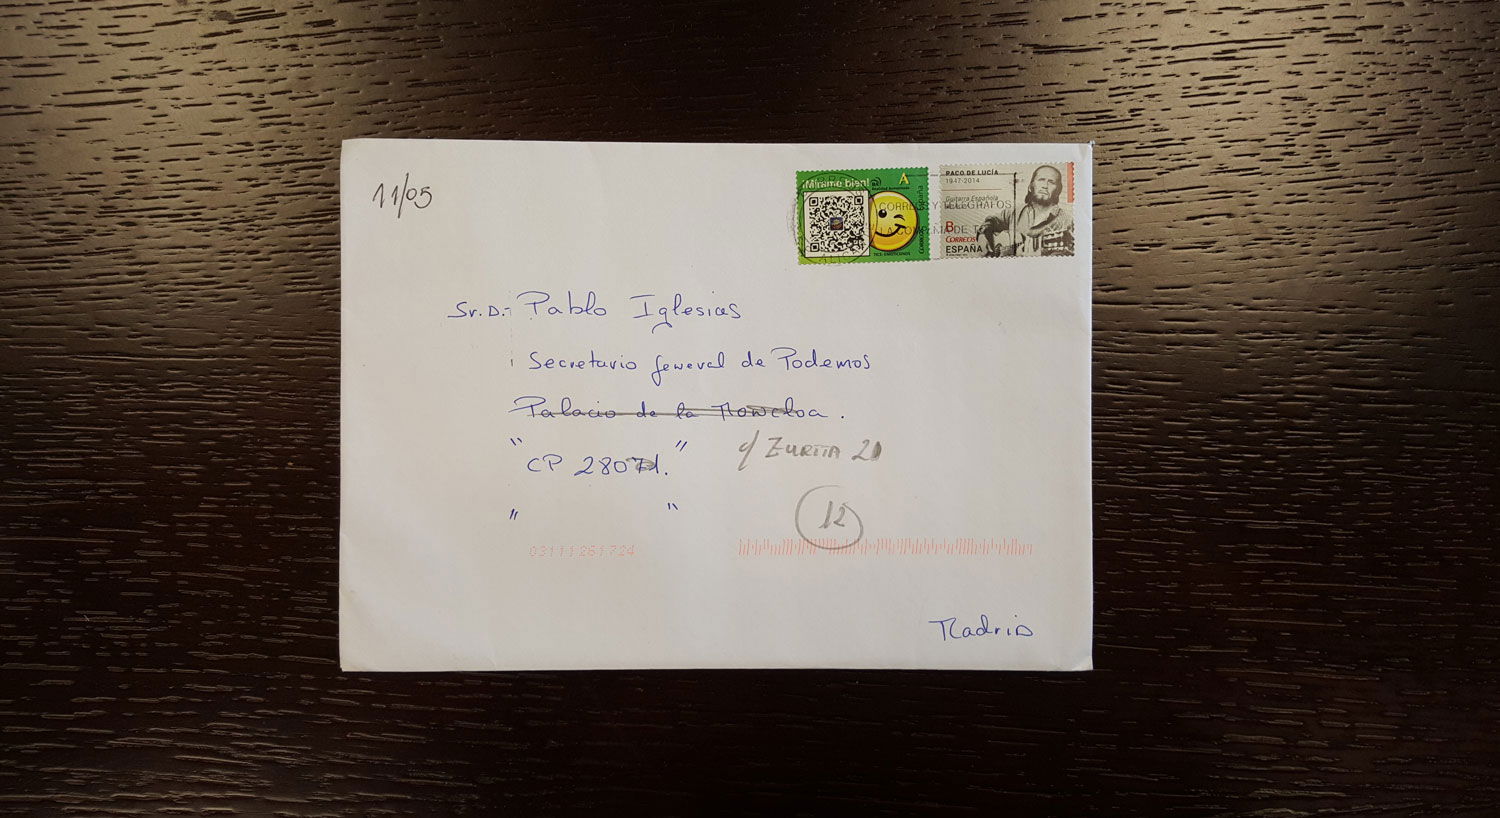 11/05
¡Mírame bien!
A
Realidad Aumentada
España
CORREOS
TICS: EMOTICONOS
PACO DE LUCÍA
1947-2014
Guitarra Española
B
CORREOS
ESPAÑA
CORREOS Y TELEGRAFOS
Sr. D.: Pablo Iglesias
Secretario general de Podemos
Palacio de la Moncloa.
" "
CP 28071.
c/ ZURITA 21
" "
12
03111261724
Madrid